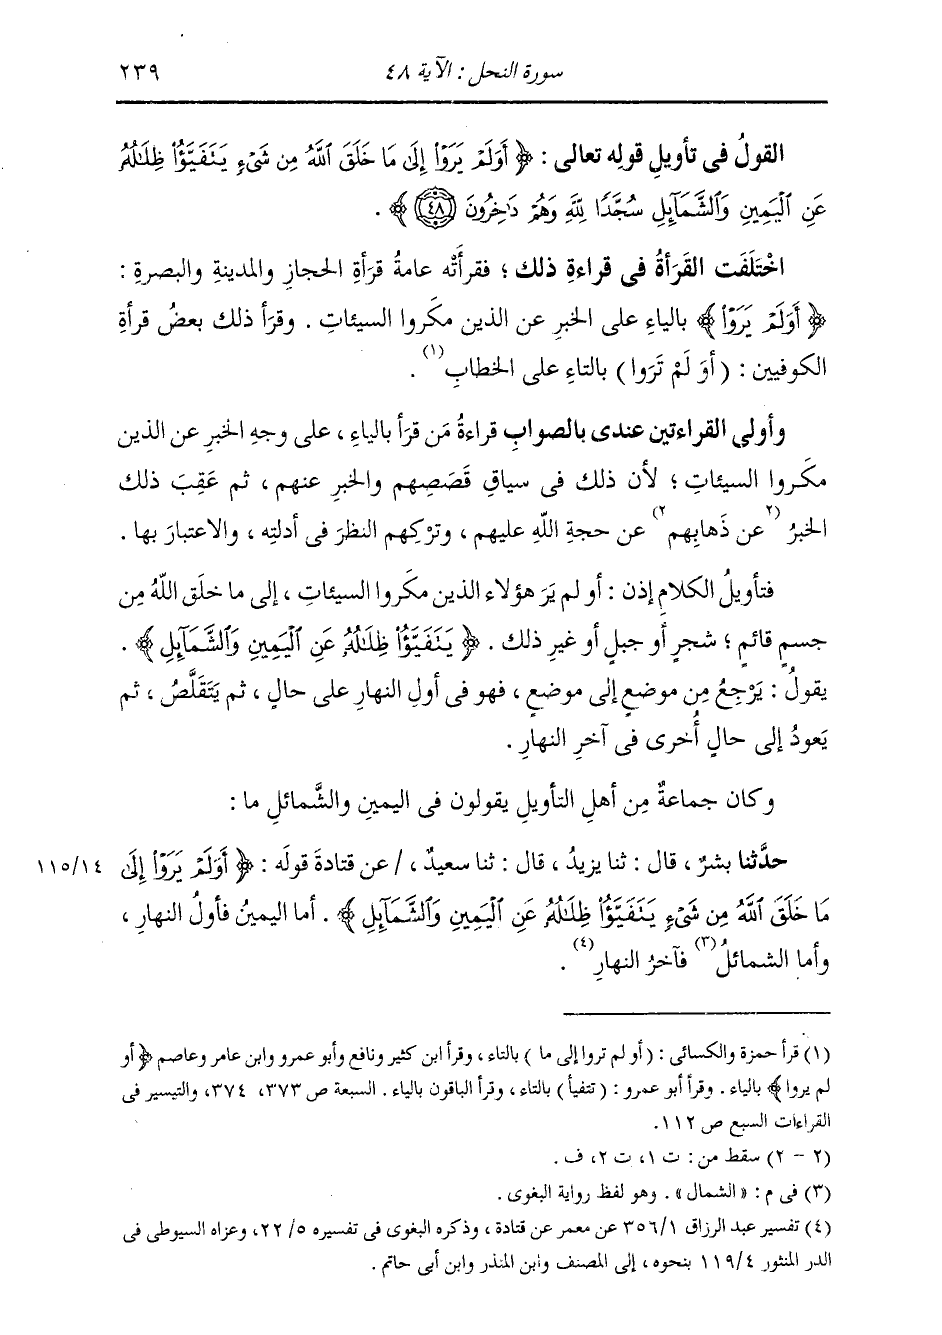 سورة النحل : الآية ٤٨
٢٣٩
القولُ فى تأويلِ قولِه تعالى : ﴿ أَوَلَمْ يَرَوْا۟ إِلَىٰ مَا خَلَقَ ٱللَّهُ مِن شَىْءٍ يَتَفَيَّؤُا۟ ظِلَٰلُهُ
عَنِ ٱلْيَمِينِ وَٱلشَّمَآئِلِ سُجَّدًا لِلَّهِ وَهُمْ دَٰخِرُونَ ٤٨ ﴾ .
اخْتَلَفَت القَرَأةُ فى قراءةِ ذلك ؛ فقرأَتْه عامةُ قرَأةِ الحجازِ والمدينةِ والبصرةِ :
﴿ أَوَلَمْ يَرَوْا۟ ﴾ بالياءِ على الخبرِ عن الذين مكَروا السيئاتِ . وقرَأ ذلك بعضُ قرأةِ
الكوفيين : ( أوَ لَمْ تَرَوا ) بالتاءِ على الخطابِ (١) .
وأولى القراءتين عندى بالصوابِ قراءةُ مَن قرَأ بالياءِ ، على وجهِ الخبرِ عن الذين
مكَروا السيئاتِ ؛ لأن ذلك فى سياقِ قَصَصِهم والخبرِ عنهم ، ثم عَقِبَ ذلك
الخبرُ (٢عن ذَهابِهم٢) عن حجةِ اللَّهِ عليهم ، وترْكِهم النظرَ فى أدلتِه ، والاعتبارَ بها .
فتأويلُ الكلامِ إذن : أو لم يَرَ هؤلاء الذين مكَروا السيئاتِ ، إلى ما خلَق اللَّهُ مِن
جسمٍ قائمٍ ؛ شجرٍ أو جبلٍ أو غيرِ ذلك . ﴿ يَتَفَيَّؤُا۟ ظِلَٰلُهُ عَنِ ٱلْيَمِينِ وَٱلشَّمَآئِلِ ﴾ .
يقولُ : يَرْجِعُ مِن موضعٍ إلى موضعٍ ، فهو فى أولِ النهارِ على حالٍ ، ثم يَتَقَلَّصُ ، ثم
يَعودُ إلى حالٍ أُخرى فى آخرِ النهارِ .
وكان جماعةٌ مِن أهلِ التأويلِ يقولون فى اليمينِ والشَّمائلِ ما :
حدَّثنا بشرٌ ، قال : ثنا يزيدُ ، قال : ثنا سعيدٌ ، / عن قتادةَ قولَه : ﴿ أَوَلَمْ يَرَوْا۟ إِلَىٰ
١١٥/١٤
مَا خَلَقَ ٱللَّهُ مِن شَىْءٍ يَتَفَيَّؤُا۟ ظِلَٰلُهُ عَنِ ٱلْيَمِينِ وَٱلشَّمَآئِلِ ﴾ . أما اليمينُ فأولُ النهارِ ،
وأما الشمائلُ (٣) فآخرُ النهارِ (٤) .
(١) قرأ حمزة والكسائى : ( أو لم تروا إلى ما ) بالتاء ، وقرأ ابن كثير ونافع وأبو عمرو وابن عامر وعاصم ﴿ أو
لم يروا ﴾ بالياء . وقرأ أبو عمرو : ( تتفيأ ) بالتاء ، وقرأ الباقون بالياء . السبعة ص ٣٧٣، ٣٧٤، والتيسير فى
القراءات السبع ص ١١٢.
(٢ - ٢) سقط من : ت ١، ت ٢، ف .
(٣) فى م : « الشمال » . وهو لفظ رواية البغوى .
(٤) تفسير عبد الرزاق ٣٥٦/١ عن معمر عن قتادة ، وذكره البغوى فى تفسيره ٥/ ٢٢، وعزاه السيوطى فى
الدر المنثور ١١٩/٤ بنحوه ، إلى المصنف وابن المنذر وابن أبى حاتم .